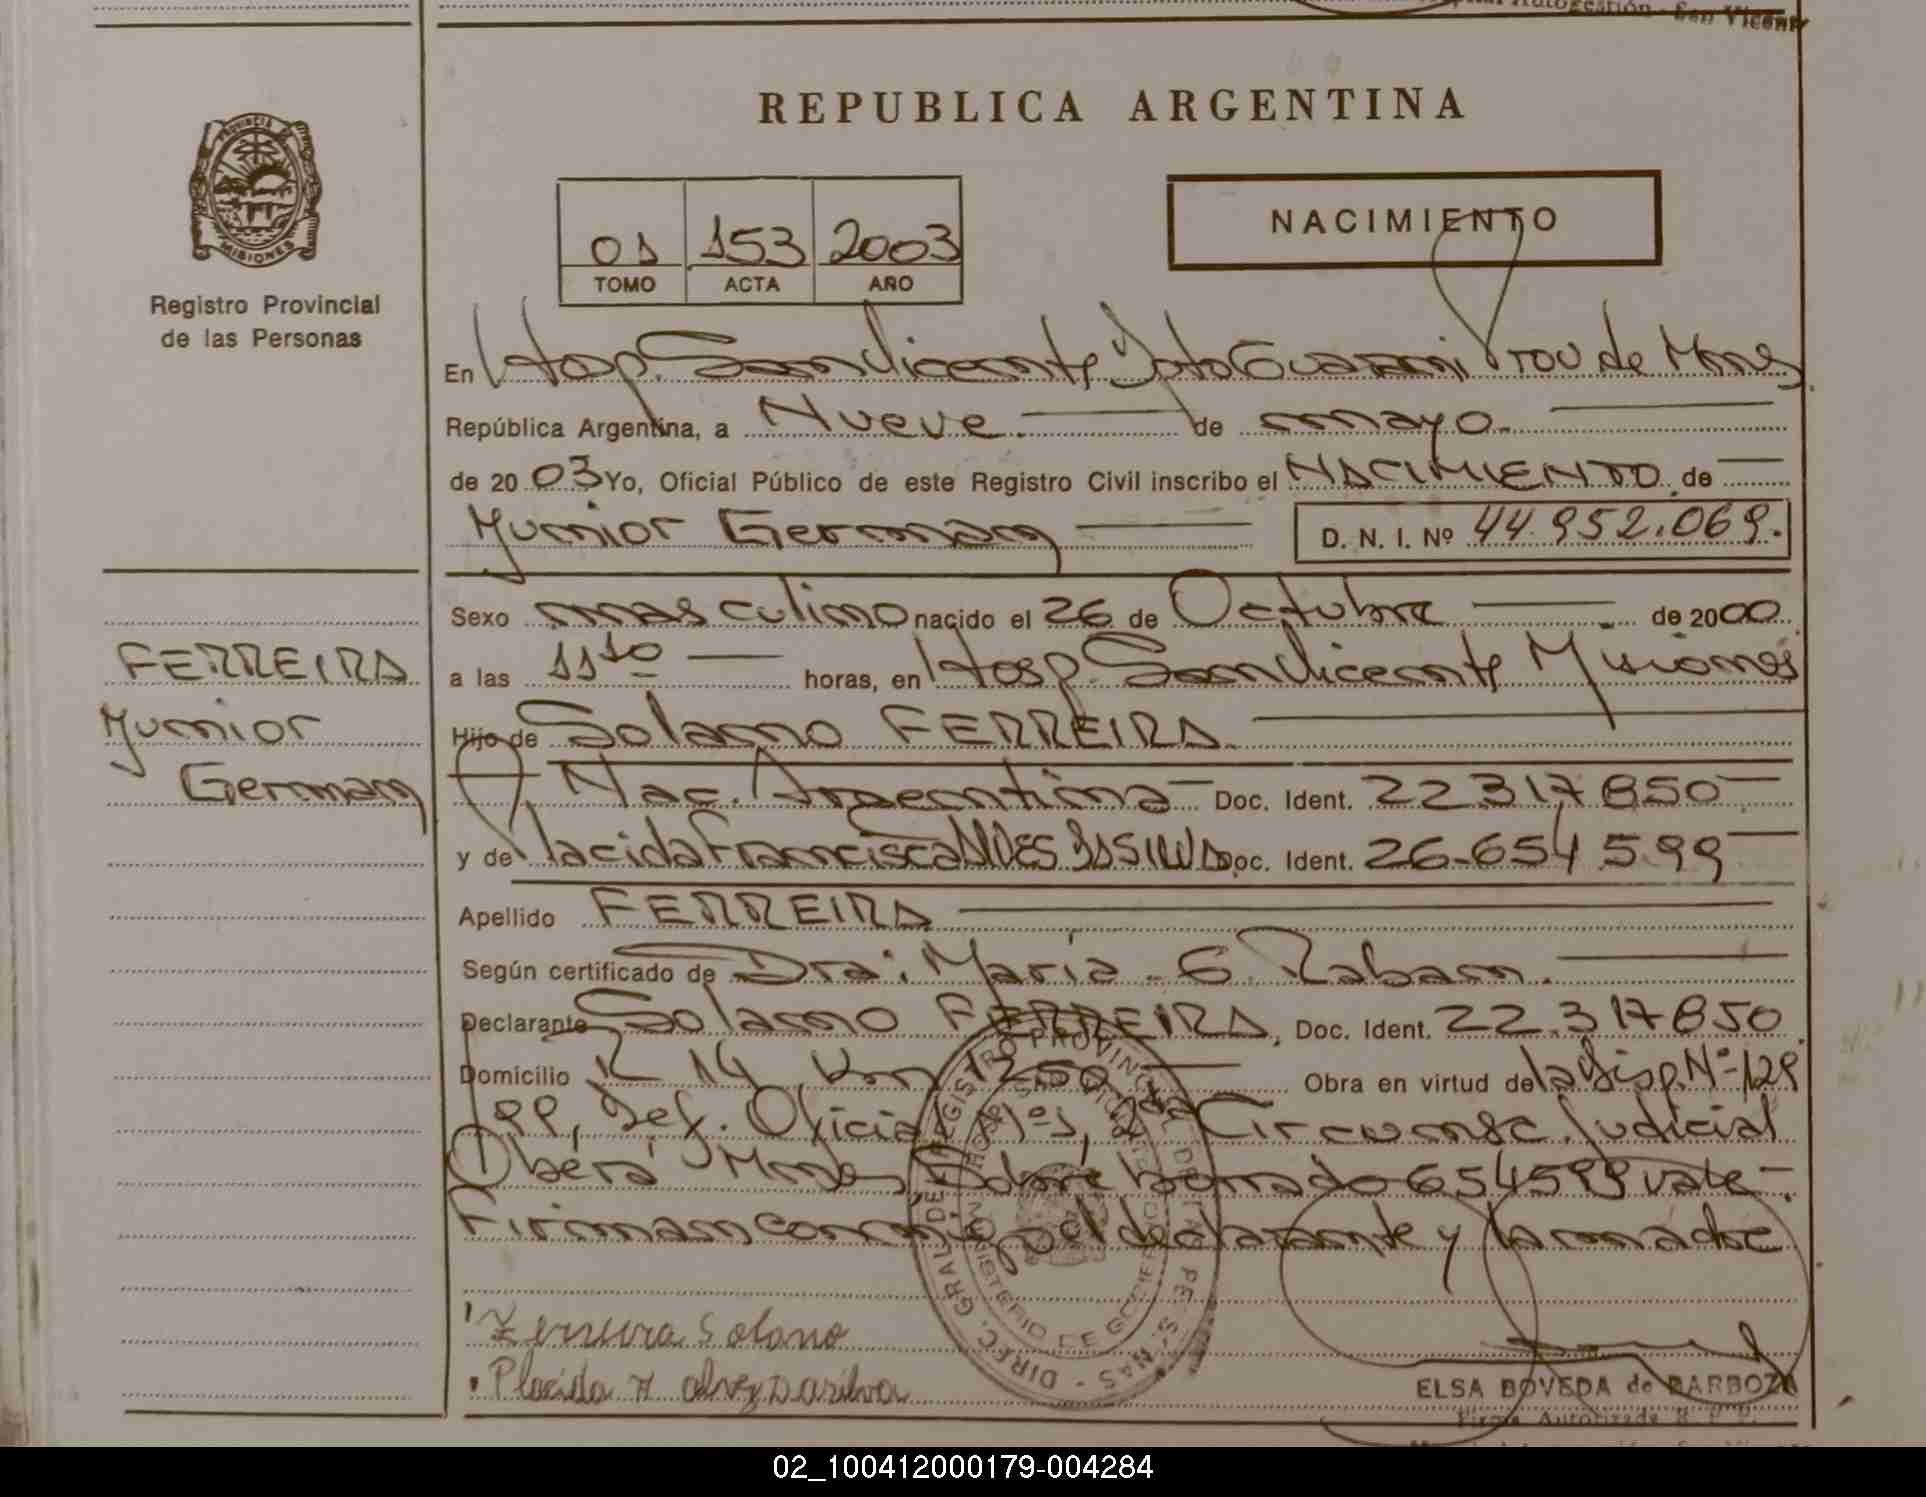 Autogestión - San Vicente
REPUBLICA ARGENTINA
PROVINCIA DE
MISIONES
Registro Provincial
de las Personas
01 153 2003
TOMO ACTA AÑO
NACIMIENTO
En Hosp. San Vicente Dpto Guarani Prov de Mnes
República Argentina, a Nueve de mayo.
de 2003 Yo, Oficial Público de este Registro Civil inscribo el NACIMIENTO de
Yunior German D. N. I. Nº 44.952.069.
Sexo masculino nacido el 26 de Octubre de 2000
a las 11 10 horas, en Hosp. San Vicente Misiones
Hijo de Solano FERREIRA
Nac. Argentina Doc. Ident. 22317850
y de Placida Francisca ALVES DA SILVA Doc. Ident. 26.654599
Apellido FERREIRA
Según certificado de Dra. Maria E. Rabam.
Declarante Solano FERREIRA, Doc. Ident. 22.317850
Domicilio R 14 Km 1250 Obra en virtud de la Disp. Nº 129
99, Def. Oficial Nº 1, 2da Circunsc. Judicial
Oberá Mnes Sobre borrado 654599 vale
Firman conmigo el declarante y la madre
FERREIRA
Yunior
German
Ferreira Solano
Placida F alvez Dasilva
DIREC. GRAL DE REGISTRO PROVINCIAL DE LAS PERSONAS
MINISTERIO DE GOBIERNO
ELSA BOVEDA de BARBOZA
Firma Autorizada R. P. P.
02_100412000179-004284